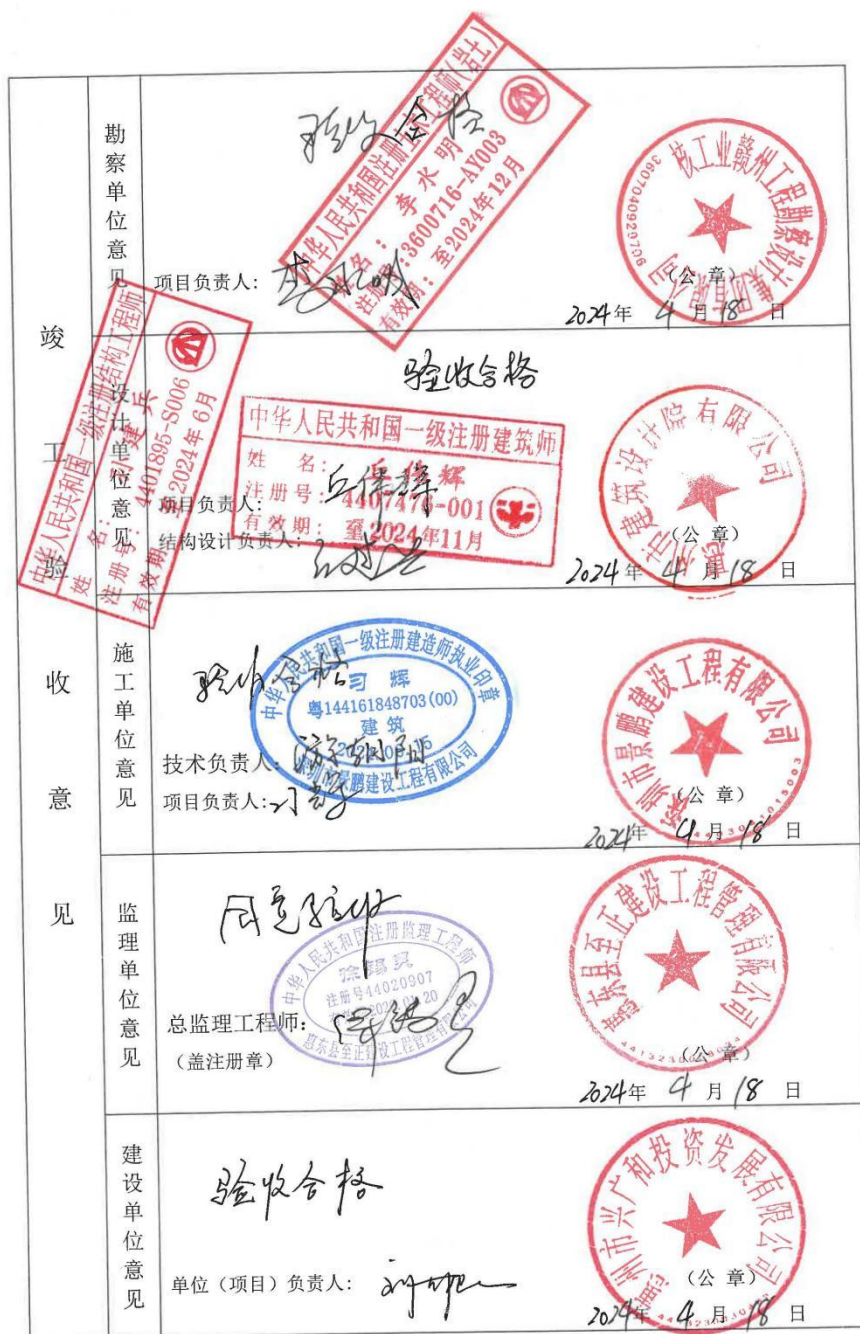 竣工验收意见
勘察单位意见
验收合格
中华人民共和国注册土木工程师(岩土)
姓名：李水明
注册号:3600716-AY003
有效期：至2024年12月
项目负责人：李水明
核工业赣州工程勘察设计集团有限公司
(公 章)
2024年 4 月 18 日
设计单位意见
验收合格
中华人民共和国一级注册结构工程师
姓 名：
注册号：4401895-S006
有效期：至2024年6月
中华人民共和国一级注册建筑师
姓 名：
注册号：
有效期：至2024年11月
项目负责人：
结构设计负责人：
惠州市建筑设计院有限公司
(公 章)
2024年 4 月 18 日
施工单位意见
验收合格
中华人民共和国一级注册建造师执业印章
习 辉
粤144161848703(00)
建 筑
深圳市景鹏建设工程有限公司
技术负责人：
项目负责人：习辉
深圳市景鹏建设工程有限公司
(公 章)
2024年 4 月 18 日
监理单位意见
同意验收
中华人民共和国注册监理工程师
注册号44020907
惠东县至正建设工程管理有限公司
总监理工程师：
(盖注册章)
惠东县至正建设工程管理有限公司
(公 章)
2024年 4 月 18 日
建设单位意见
验收合格
单位（项目）负责人：
惠州市兴广和投资发展有限公司
(公 章)
2024年 4 月 18 日